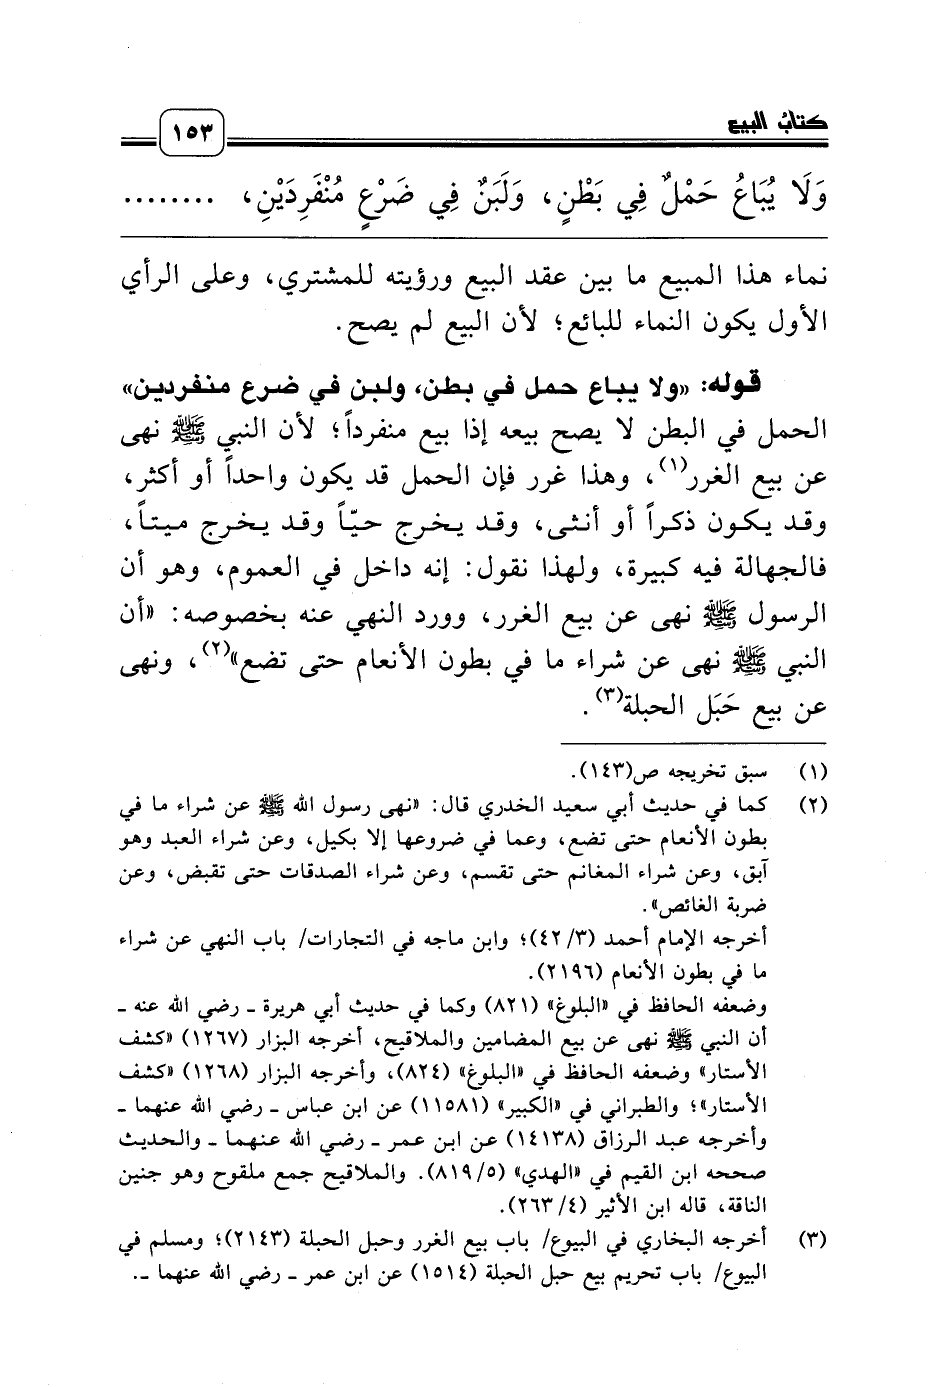 كتاب البيع
١٥٣
وَلَا يُبَاعُ حَمْلٌ فِي بَطْنٍ، وَلَبَنٌ فِي ضَرْعٍ مُنْفَرِدَيْنِ، ........
نماء هذا المبيع ما بين عقد البيع ورؤيته للمشتري، وعلى الرأي
الأول يكون النماء للبائع؛ لأن البيع لم يصح.
قوله: «ولا يباع حمل في بطن، ولبن في ضرع منفردين»
الحمل في البطن لا يصح بيعه إذا بيع منفرداً؛ لأن النبي ﷺ نهى
عن بيع الغرر(١)، وهذا غرر فإن الحمل قد يكون واحداً أو أكثر،
وقد يكون ذكراً أو أنثى، وقد يخرج حيّاً وقد يخرج ميتاً،
فالجهالة فيه كبيرة، ولهذا نقول: إنه داخل في العموم، وهو أن
الرسول ﷺ نهى عن بيع الغرر، وورد النهي عنه بخصوصه: «أن
النبي ﷺ نهى عن شراء ما في بطون الأنعام حتى تضع»(٢)، ونهى
عن بيع حَبَل الحبلة(٣).
(١) سبق تخريجه ص(١٤٣).
(٢) كما في حديث أبي سعيد الخدري قال: «نهى رسول الله ﷺ عن شراء ما في
بطون الأنعام حتى تضع، وعما في ضروعها إلا بكيل، وعن شراء العبد وهو
آبق، وعن شراء المغانم حتى تقسم، وعن شراء الصدقات حتى تقبض، وعن
ضربة الغائص».
أخرجه الإمام أحمد (٣/ ٤٢)؛ وابن ماجه في التجارات/ باب النهي عن شراء
ما في بطون الأنعام (٢١٩٦).
وضعفه الحافظ في «البلوغ» (٨٢١) وكما في حديث أبي هريرة ـ رضي الله عنه ـ
أن النبي ﷺ نهى عن بيع المضامين والملاقيح، أخرجه البزار (١٢٦٧) «كشف
الأستار» وضعفه الحافظ في «البلوغ» (٨٢٤)، وأخرجه البزار (١٢٦٨) «كشف
الأستار»؛ والطبراني في «الكبير» (١١٥٨١) عن ابن عباس ـ رضي الله عنهما ـ
وأخرجه عبد الرزاق (١٤١٣٨) عن ابن عمر ـ رضي الله عنهما ـ والحديث
صححه ابن القيم في «الهدي» (٥/ ٨١٩). والملاقيح جمع ملقوح وهو جنين
الناقة، قاله ابن الأثير (٤/ ٢٦٣).
(٣) أخرجه البخاري في البيوع/ باب بيع الغرر وحبل الحبلة (٢١٤٣)؛ ومسلم في
البيوع/ باب تحريم بيع حبل الحبلة (١٥١٤) عن ابن عمر ـ رضي الله عنهما ـ.